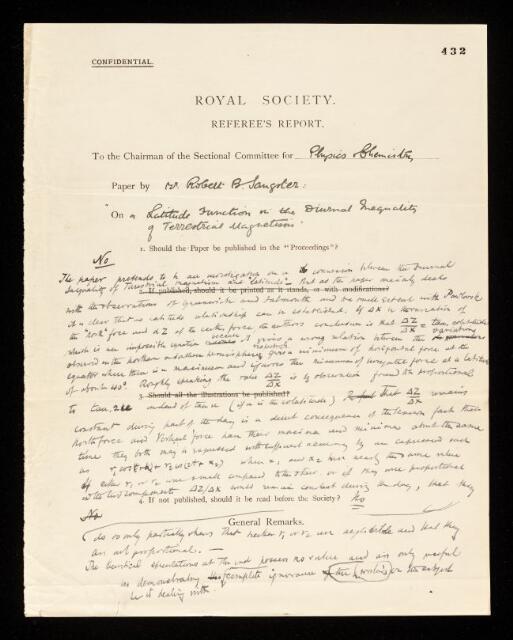 432
CONFIDENTIAL.
ROYAL SOCIETY.
REFEREE'S REPORT.
To the Chairman of the Sectional Committee for Physics & Chemistry
Paper by Dr. Robert B. Sangster:
"On a Latitude Function in the Diurnal Inequality
of Terrestrial Magnetism"
1. Should the Paper be published in the "Proceedings"?
No
The paper pretends to be an investigation on a connexion between the "Diurnal
Inequality of Terrestrial magnetism and latitude". But as the paper mainly deals
2. If published, should it be printed as it stands, or with modifications?
with the observations of Greenwich and Falmouth and to a small extent with Pawlowsk
it is clear that no latitude relationship can be established. If ΔX is the variation of
the "north" force and ΔZ of the vertical force, the authors conclusion is that ΔZ/ΔX = tan. colatitude
which is an impossible equation it gives a wrong relation between the variations
observed in the northern & southern hemisphere, gives a minimum of horizontal force at the
equator where there is a maximum and ignores the minimum of horizontal force at a latitude
of about 40°. Roughly speaking the ratio ΔZ/ΔX is by observation found to be proportional
3. Should all the illustrations be published?
to tan. 2u instead of tan u (if u is the colatitude) that ΔZ/ΔX remains
constant during part of the day is a direct consequence of the known fact that
North force and Vertical force have their maxima and minima about the same
time they both may be represented with sufficient accuracy by an expression such
as where α₁ and α₂ have nearly the same value
If either r₁ or r₂ were small compared to the other, or if they were proportional
in the two components ΔZ/ΔX would remain constant during the day, that they
4. If not published, should it be read before the Society? No
No
General Remarks.
do so only partially shows that neither r₁ or r₂ are negligible and that they
are not proportional. —
The theoretical speculations at the end possess no value and are only useful
as demonstrating complete ignorance of the writer's on the subject
he is dealing with